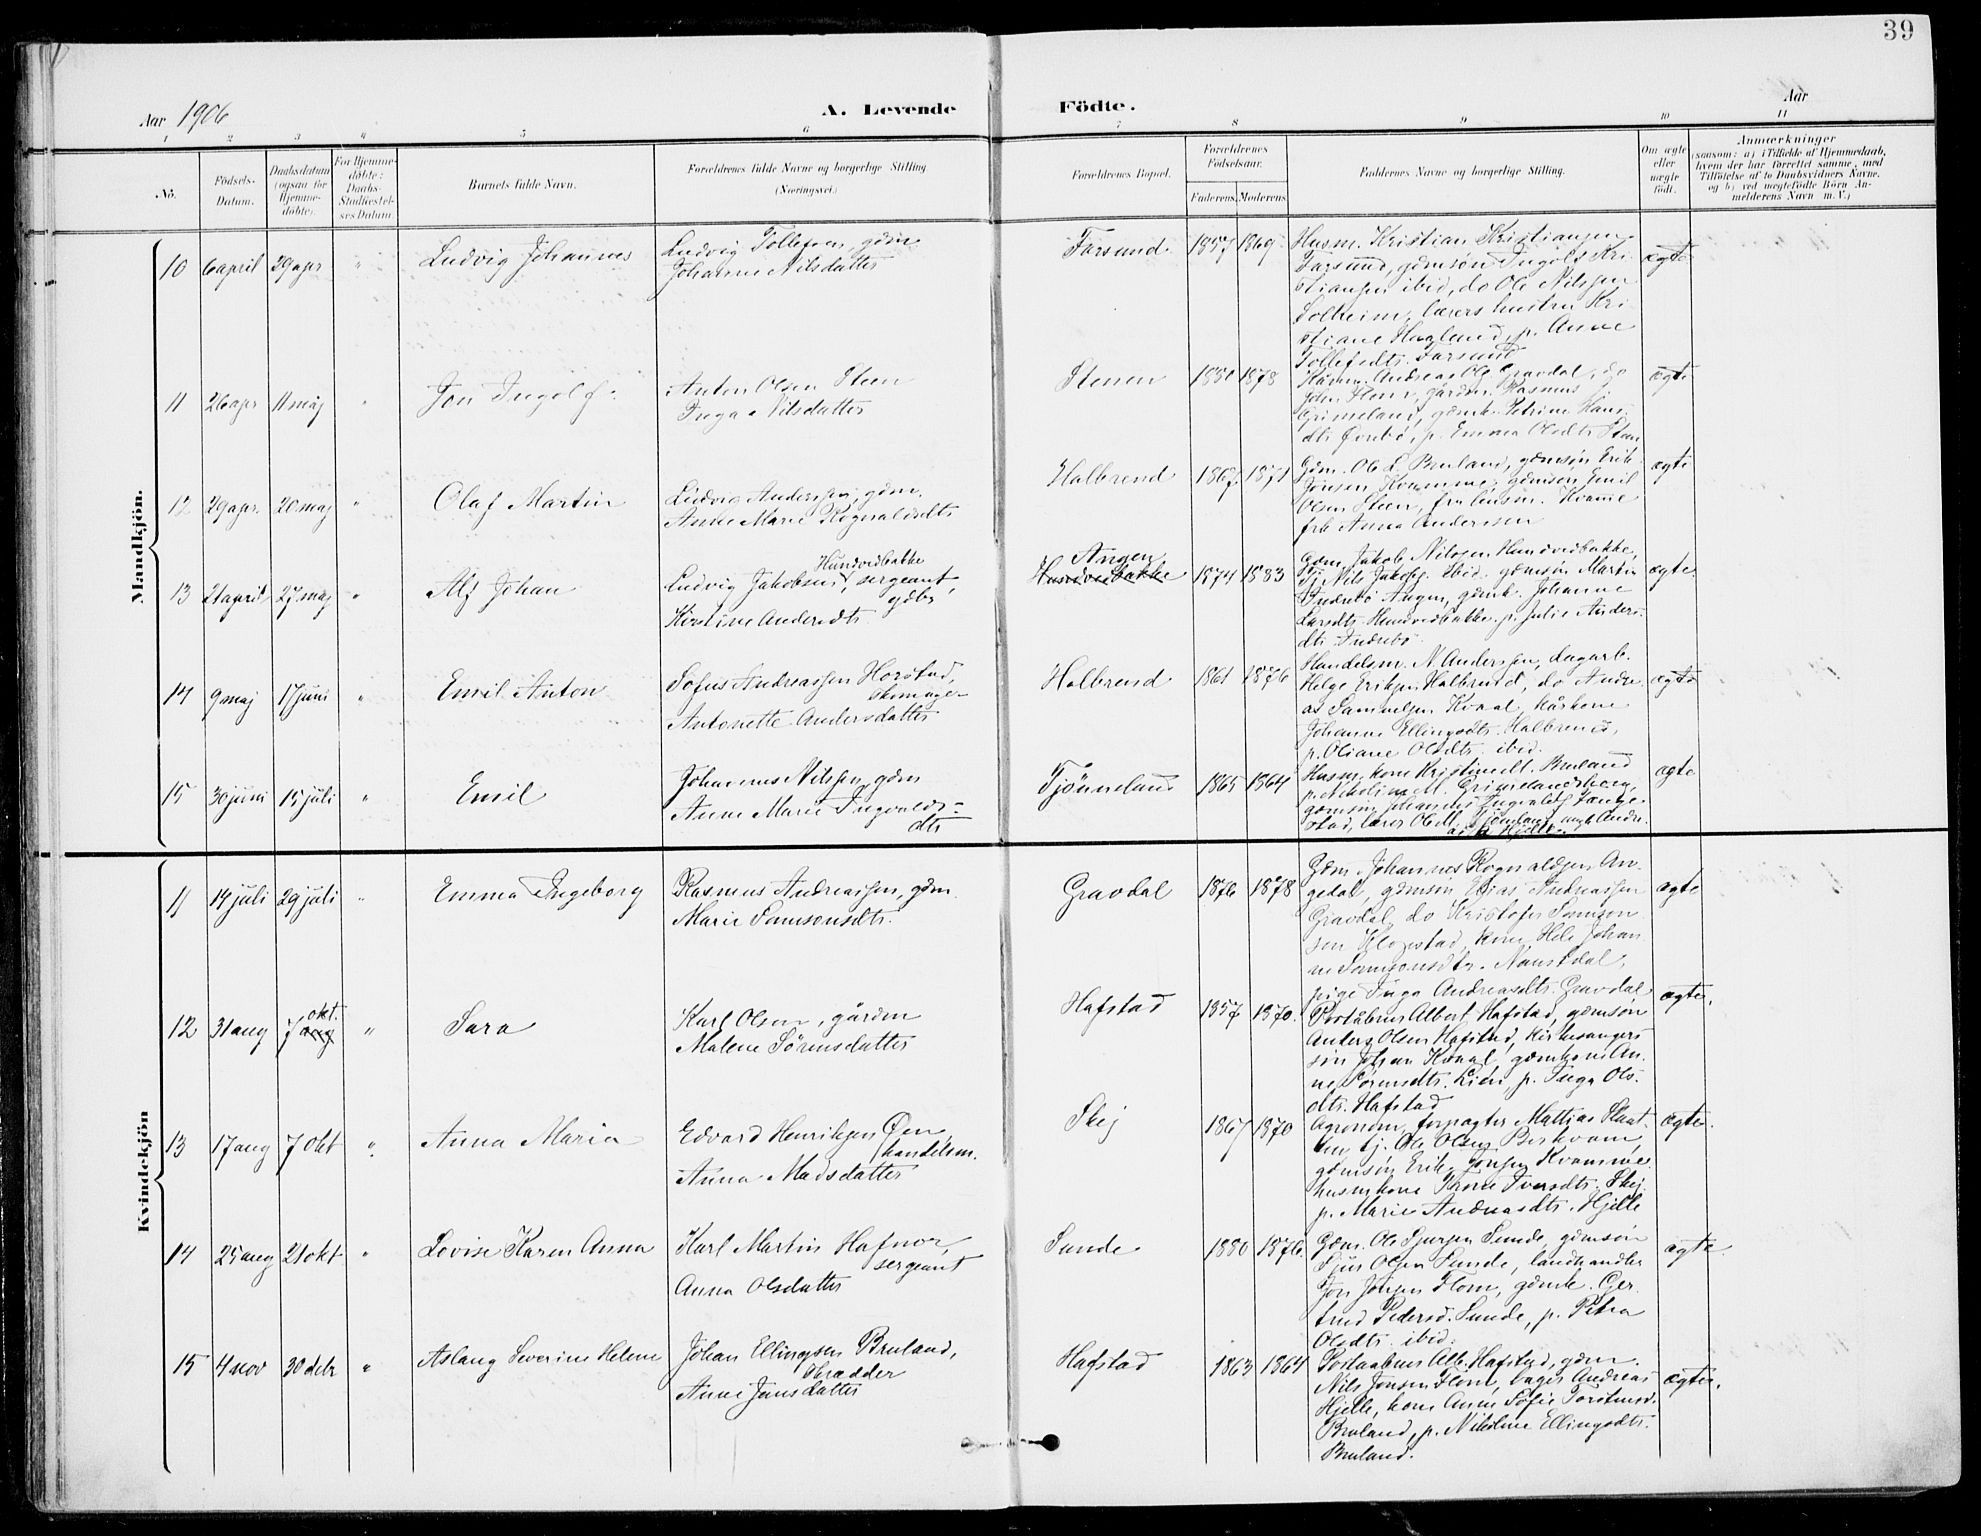 39
Aar 1906
A. Levende Födte.
Aar
1 2 3 4 5 6 7 8 9 10 11
No.
Födsels-Datum.
Daabsdatum (ogsaa for Hjemme-döbte).
For Hjemme-döbte: Daabs-Stadfæstel-ses Datum
Barnets fulde Navn.
Forældrenes fulde Navne og borgerlige Stilling (Næringsvei.)
Forældrenes Bopæl.
Forældrenes Födselsaar.
Faderens. Moderens.
Faddernes Navne og borgerlige Stilling.
Om ægte eller uægte födt.
Anmærkninger
(saasom: a) i Tilfælde af Hjemmedaab,
hvem der har forrettet samme, med
Tilföielse af to Daabsvidners Navne,
og b) ved uægtefödte Börn An-
melderens Navn m. V.)
Mandkjön.
10 6 april 29 apr " Ludvig Johannes
Ludvig Tollefsen, gdm.
Johanne Nilsdatter
Farsund 1857 1869
Husm. Kristian Kristiansen
Farsund, gdmsøn Ingolf Kri-
stiansen ibid, do Ole Nilssen
Solheim, lærers hustru Kri-
stiane Hagland, p. Anne
Tollefsdtr. Farsund
ægte
11 26 apr 11 maj " Jon Ingolf
Anton Olsen Steen
Inga Nilsdatter
Stenen 1878
Andreas Ole Gravdal, do
gårdm. Rasmus
Grimeland, gdmk. Petrine Hans-
dtr Øvrebø, p. Emma Olsdtr Steen
ægte
12 29 apr. 20 maj " Olaf Martin
Ludvig Anderssen, gdm.
Anne Marie Rognaldsdtr
Halbrend 1867 1871
Gdm. Ole L. Bruland, gdmsøn Erik
Jonsen Kvamme, gdmsøn Emil
Olsen Steen, Kvamme
frk Anna Anderssen
ægte
13 21 april 27 maj " Alf Johan
Hundvidbakke
Ludvig Jakobsen, sergeant,
gdbr
Kirstine Andersdtr.
Angen
Hundveidbakke 1874 1883
Gdm. Jakob Nilssen Hundvidbakke,
Tj. Nils Jakobs. Ibid. gdmsøn Martin
Indrebø Angen, gdmk. Johanne
Larsdtr. Hundvidbakke, p. Julie Anders-
dtr. Indrebø
ægte
14 9 maj 17 juni " Emil Anton
Sofus Andreassen Horstad,
skomager
Antonette Andersdatter
Halbrend 1861 1876
Handelsm. N. Anderssen, dagarb.
Helge Eriksen Halbrend, do Andre-
as Samuelsen Kvaal, kårkone
Johanne Ellingsdtr. Halbrend,
p. Oliane Olsdtr. ibid.
ægte
15 30 juni 15 juli " Emil
Johannes Nilssen, gdm
Anne Marie Ingvalds-
dtr
Tjønneland 1865 1864
Husm. kone Kristine M. Bruland
Grimelandsberg,
gdmsøn Johannes Ingvalds. Fange-
stad, lærer Ole M. Tjønneland, ungk Andre-
ægte
Kvindekjön
11 14 juli 29 juli " Emma Ingeborg
Rasmus Andreassen, gdm.
Marie Samsonsdtr.
Gravdal 1876 1878
Gdm. Johannes Rognaldsen An-
gedal, gdmsøn Elias Andreassen
Gravdal, do Kristofer Samson-
sen Klopstad, kone Johan-
ne Samsonsdtr. Naustdal,
pige Inga Andreasdtr. Gravdal
ægte
12 31 aug 7 okt. aug " Sara
Karl Olsen, gårdm
Malene Sørensdatter
Hafstad 1857 1870.
Poståbner Albert Hafstad, gdmsøn
Anders Olsen Hafstad, kirkesangers
søn Johan Kvaal, gdmkone An-
ne Sørensdtr. Lien, p. Inga Ols-
dtr. Hafstad
ægte.
13 17 aug 7 okt " Anna Maria
Edvard Henriksen Øen
handelsm.
Anna Madsdatter
Skej 1867 1870
Agronom, forpagter Mattias Skaat-
un, tj. Ole Olsen Birkvam,
gdmsøn Erik Jonsen Kvamme
husmkone Ivarsdtr. Skej
p. Marie Andreasdtr. Hjelle
ægte.
14 25 aug 21 okt " Lovise Karen Anna
Karl Martin Hafnor,
sergeant
Anna Olsdatter
Sunde 1880 1876.
Gdm. Ole Sjursen Sunde, gdmsøn
Sjur Olsen Sunde, landhandler
Jon Jonsen Flom, gdmk. Ger-
trud Pedersd. Sunde, p. Petra
Olsdtr. ibid.
ægte
15 4 nov 30 debr " Aslaug Severine Helene
Johan Ellingsen Bruland,
skrædder
Anne Jensdatter
Hafstad 1863 1864
Postaabner Alb. Hafstad, gdm.
Nils Jonsen Flom, bager Andreas
Hjelle, kone Anne Sofie Torstensd.
Bruland, p. Nikoline Ellingsdtr.
Bruland.
ægte.